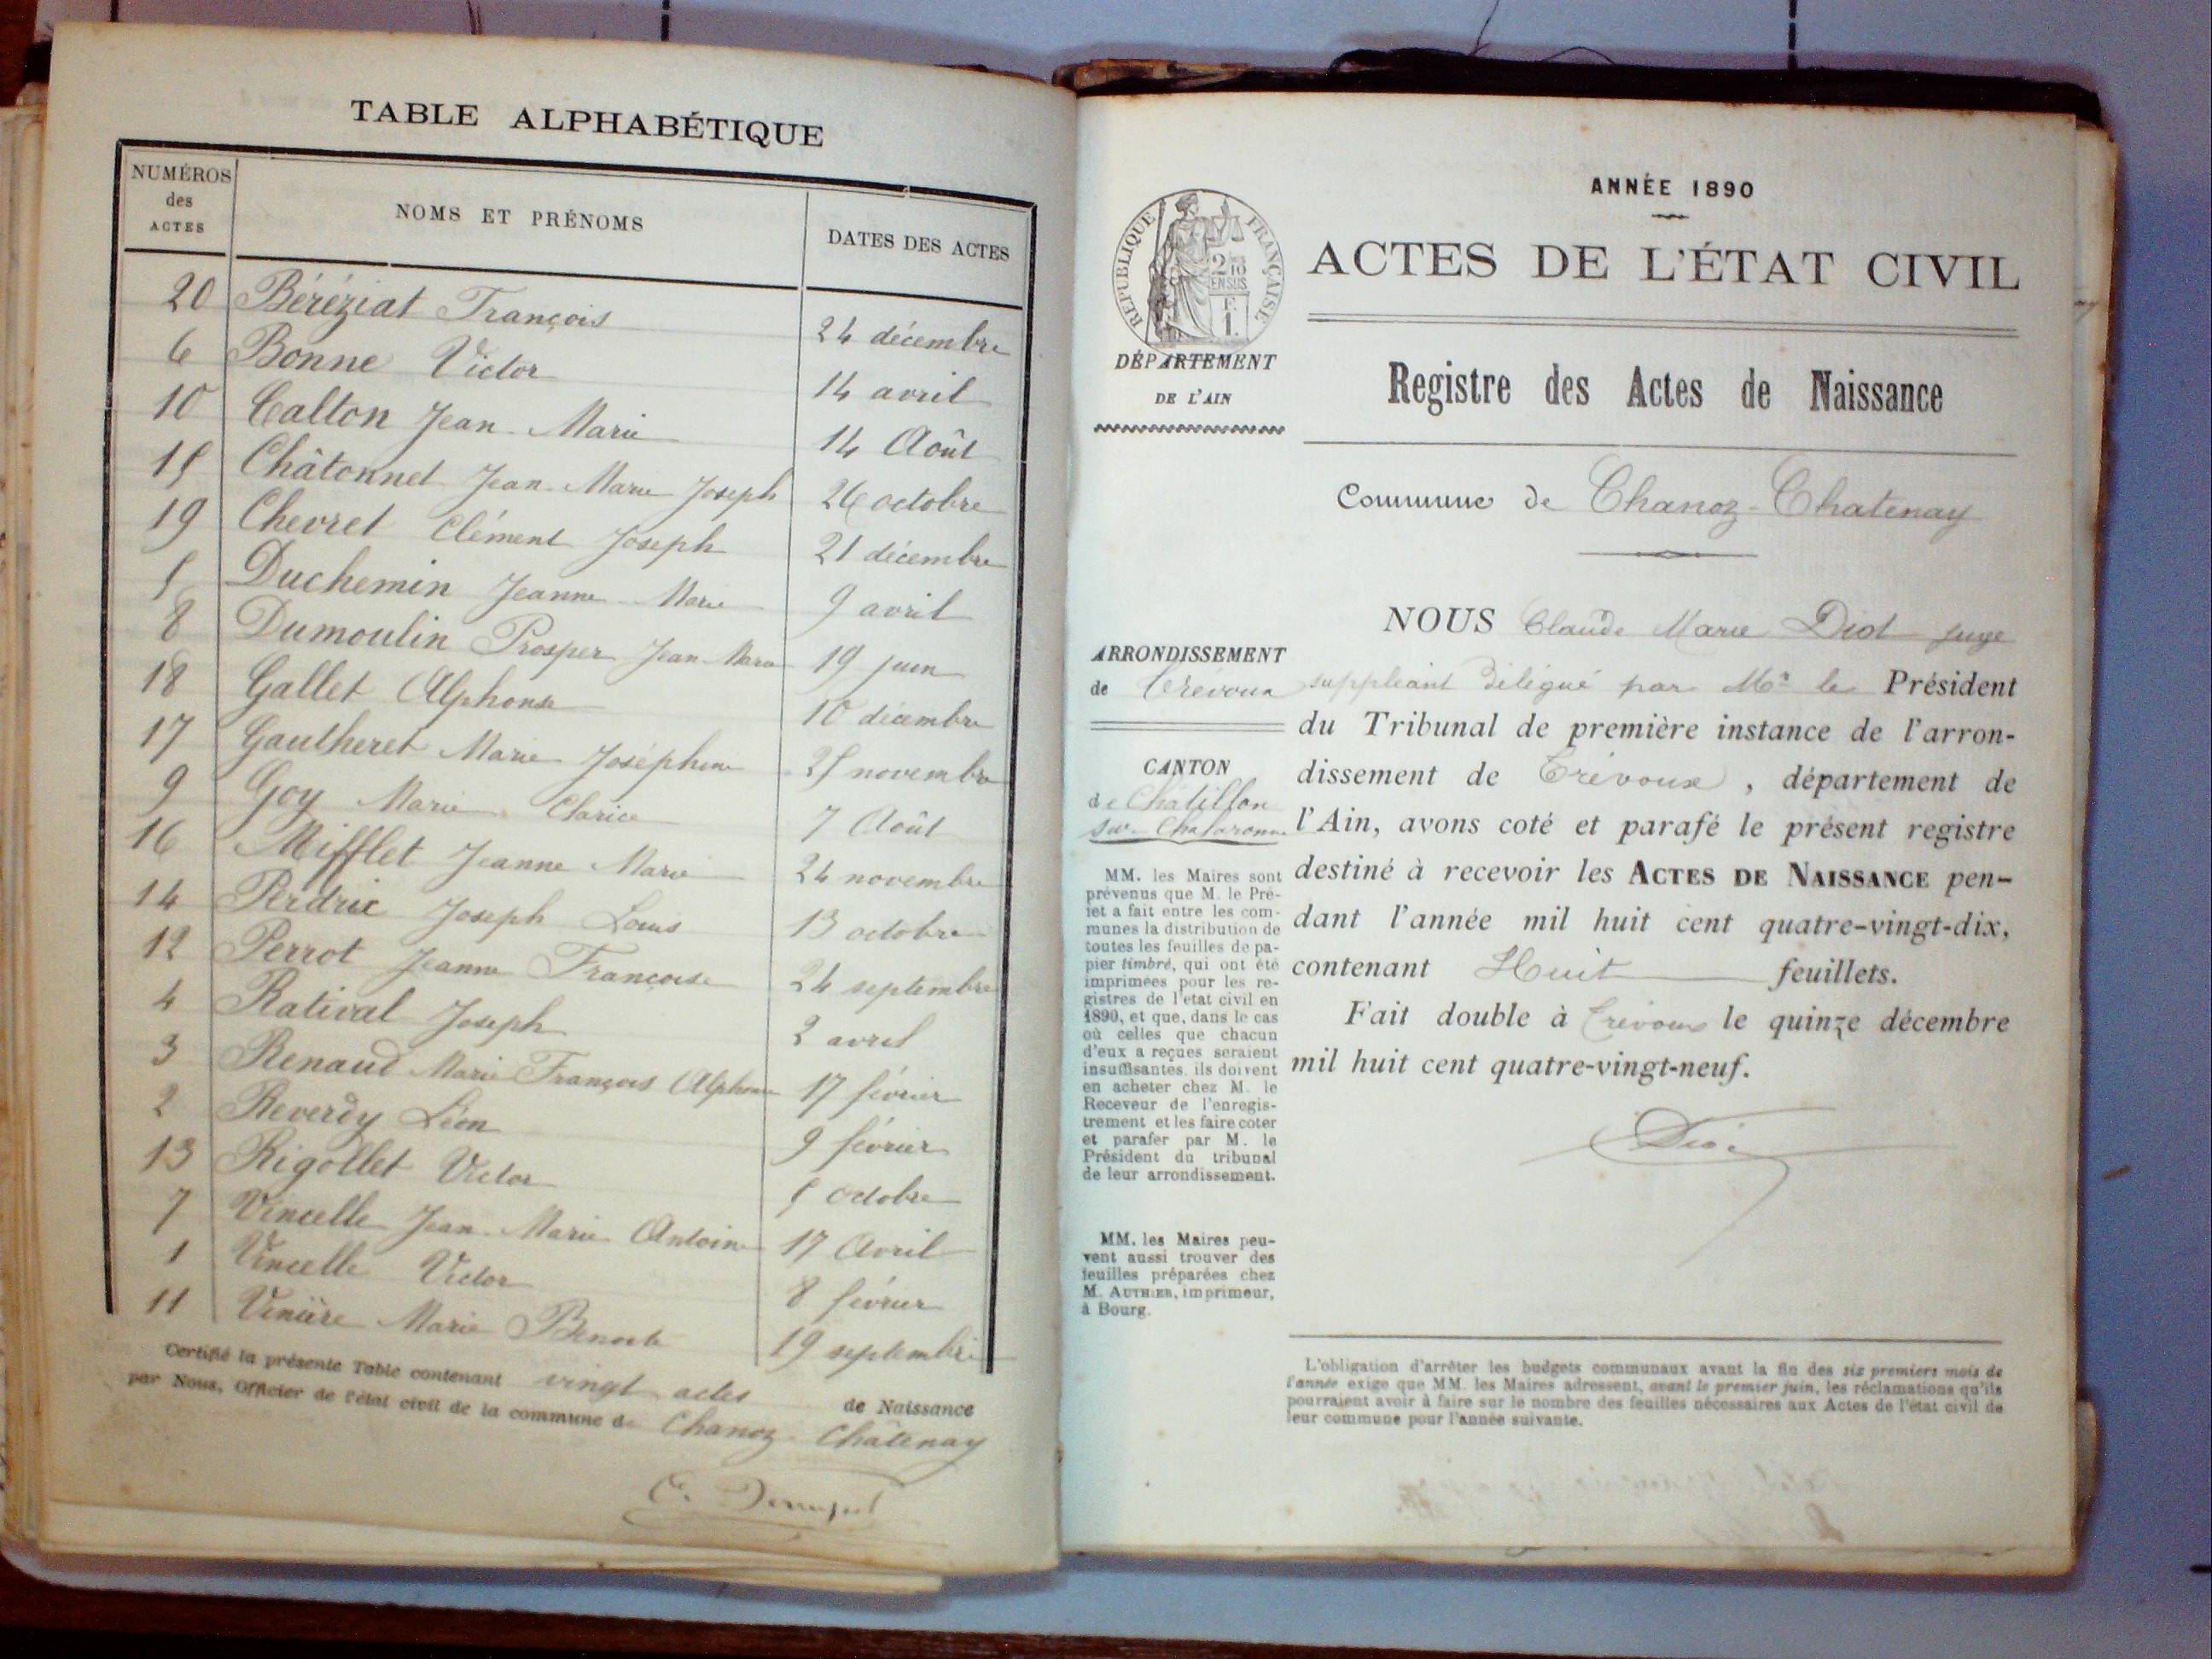 TABLE ALPHABÉTIQUE
NUMÉROS des ACTES NOMS ET PRÉNOMS DATES DES ACTES
20 Béréziat François 24 décembre
6 Bonne Victor 14 avril
10 Calton Jean Marie 14 Août
15 Châtonnet Jean Marie Joseph 26 octobre
19 Chevret Clément Joseph 21 décembre
5 Duchemin Jeanne Marie 9 avril
8 Dumoulin Prosper Jean Marie 19 juin
18 Gallet Alphonse 10 décembre
17 Gautheret Marie Joséphine 25 novembre
9 Goy Marie Clarice 7 Août
16 Mifflet Jeanne Marie 24 novembre
14 Perdrix Joseph Louis 13 octobre
12 Perrot Jeanne Françoise 24 septembre
4 Rativat Joseph 2 avril
3 Renaud Marie François Alphonse 17 février
2 Reverdy Léon 9 février
13 Rigollet Victor 5 octobre
7 Vincelle Jean Marie Antoine 17 Avril
1 Vincelle Victor 8 février
11 Marie Benoite 19 septembre
Certifié la présente Table contenant vingt actes de Naissance
par Nous, Officier de l'état civil de la commune de Chanoz Châtenay
ANNÉE 1890
RÉPUBLIQUE FRANÇAISE
2/10 EN SUS
F.
1.
ACTES DE L'ÉTAT CIVIL
DÉPARTEMENT
DE L'AIN
Registre des Actes de Naissance
Commune de Chanoz-Chatenay
ARRONDISSEMENT
de Trévoux
CANTON
de Châtillon
sur Chalaronne
MM. les Maires sont
prévenus que M. le Pré-
fet a fait entre les com-
munes la distribution de
toutes les feuilles de pa-
pier timbré, qui ont été
imprimées pour les re-
gistres de l'état civil en
1890, et que, dans le cas
où celles que chacun
d'eux a reçues seraient
insuffisantes, ils doivent
en acheter chez M. le
Receveur de l'enregis-
trement et les faire coter
et parafer par M. le
Président du tribunal
de leur arrondissement.
MM. les Maires peu-
vent aussi trouver des
feuilles préparées chez
M. AUTHIER, imprimeur,
à Bourg.
NOUS Claude Marie Diot juge
suppléant délégué par Mr le Président
du Tribunal de première instance de l'arron-
dissement de Trévoux, département de
l'Ain, avons coté et parafé le présent registre
destiné à recevoir les ACTES DE NAISSANCE pen-
dant l'année mil huit cent quatre-vingt-dix,
contenant Huit feuillets.
Fait double à Trévoux le quinze décembre
mil huit cent quatre-vingt-neuf.
Diot
L'obligation d'arrêter les budgets communaux avant la fin des six premiers mois de
l'année exige que MM. les Maires adressent, avant le premier juin, les réclamations qu'ils
pourraient avoir à faire sur le nombre des feuilles nécessaires aux Actes de l'état civil de
leur commune pour l'année suivante.